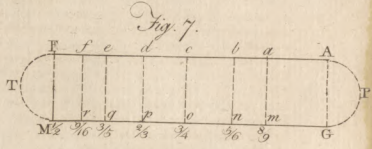 Fig. 7.
F f e d c b a A
T P
r q p o n m
M ½ 9/16 3/5 2/3 3/4 5/6 8/9 G